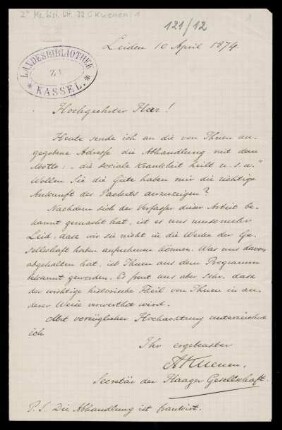 2° Ms. hist. litt. 22 [KUENEN: 1
121/12
Leiden 10 April 1874
LANDESBIBLIOTHEK
ZU
KASSEL.
Hochgeehrter Herr!
Heute sende ich an die von Ihnen an-
gegebene Adresse die Abhandlung mit dem
Motto: „die sociale Krankheit heilt u. s. w."
Wollen Sie die Güte haben mir die richtige
Ankunft des Packets anzuzeigen?
Nachdem sich der Verfasser dieser Arbeit be-
kannt gemacht hat, ist es uns um so mehr
Leid, dass wir sie nicht in die Werke der Ge-
sellschaft haben aufnehmen können. Was uns davon
abgehalten hat, ist Ihnen aus dem Programm
bekannt geworden. Es freut uns aber sehr, dass
der wichtige historische Theil von Ihnen in an-
derer Weise verwerthet wird.
Mit vorzüglicher Hochachtung unterzeichne
ich
Ihr ergebenster
A Kuenen.
Secretär der Haager Gesellschaft.
P. S. Die Abhandlung ist frankirt.